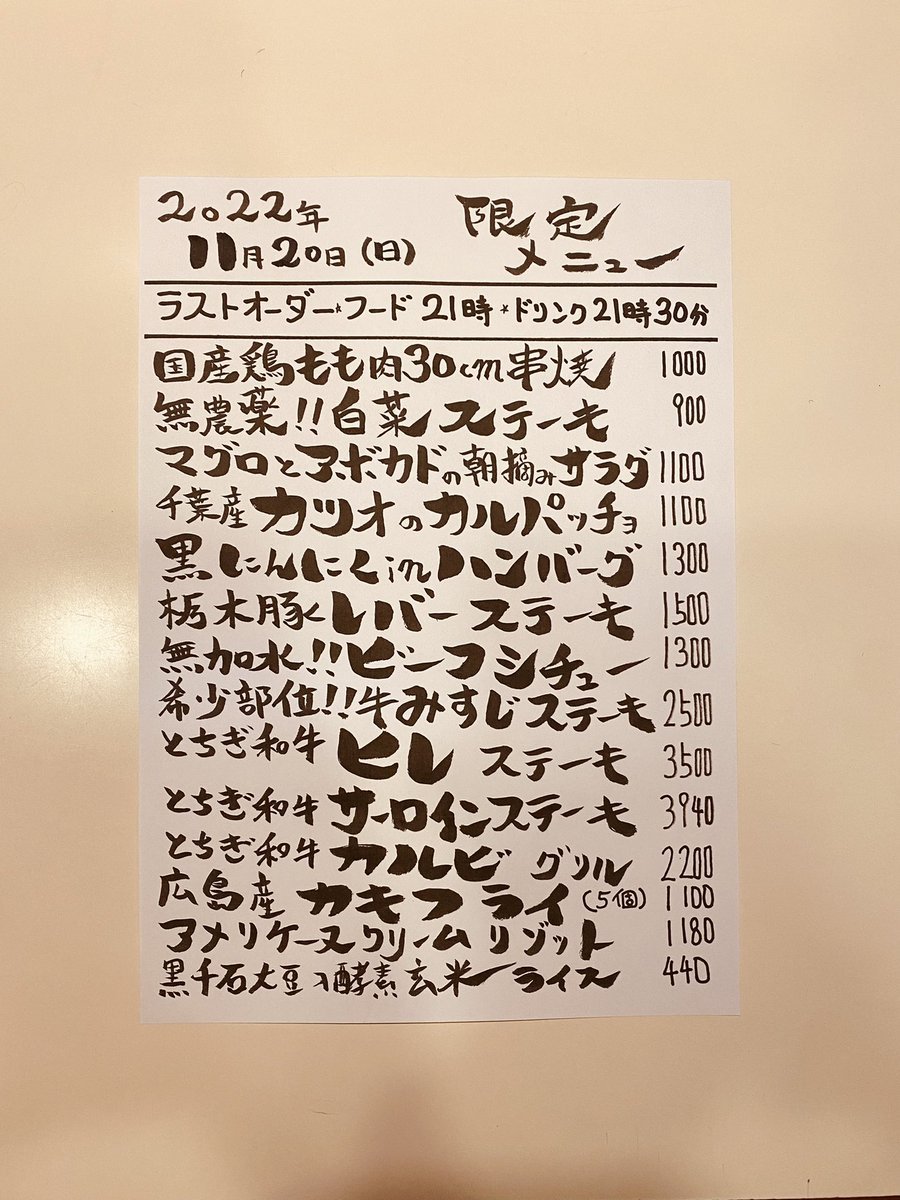 2022年
11月20日(日)
限定
メニュー
ラストオーダー*フード 21時 *ドリンク21時30分
国産鶏もも肉30cm串焼 1000
無農薬!!白菜ステーキ 900
マグロとアボカドの朝摘みサラダ 1100
千葉産カツオのカルパッチョ 1100
黒にんにくinハンバーグ 1300
栃木豚レバーステーキ 1500
無加水!!ビーフシチュー 1300
希少部位!!牛みすじステーキ 2500
とちぎ和牛 ヒレステーキ 3500
とちぎ和牛 サーロインステーキ 3940
とちぎ和牛 カルビグリル 2200
広島産 カキフライ(5個) 1100
アメリケーヌクリームリゾット 1180
黒千石大豆入酵素玄米ライス 440